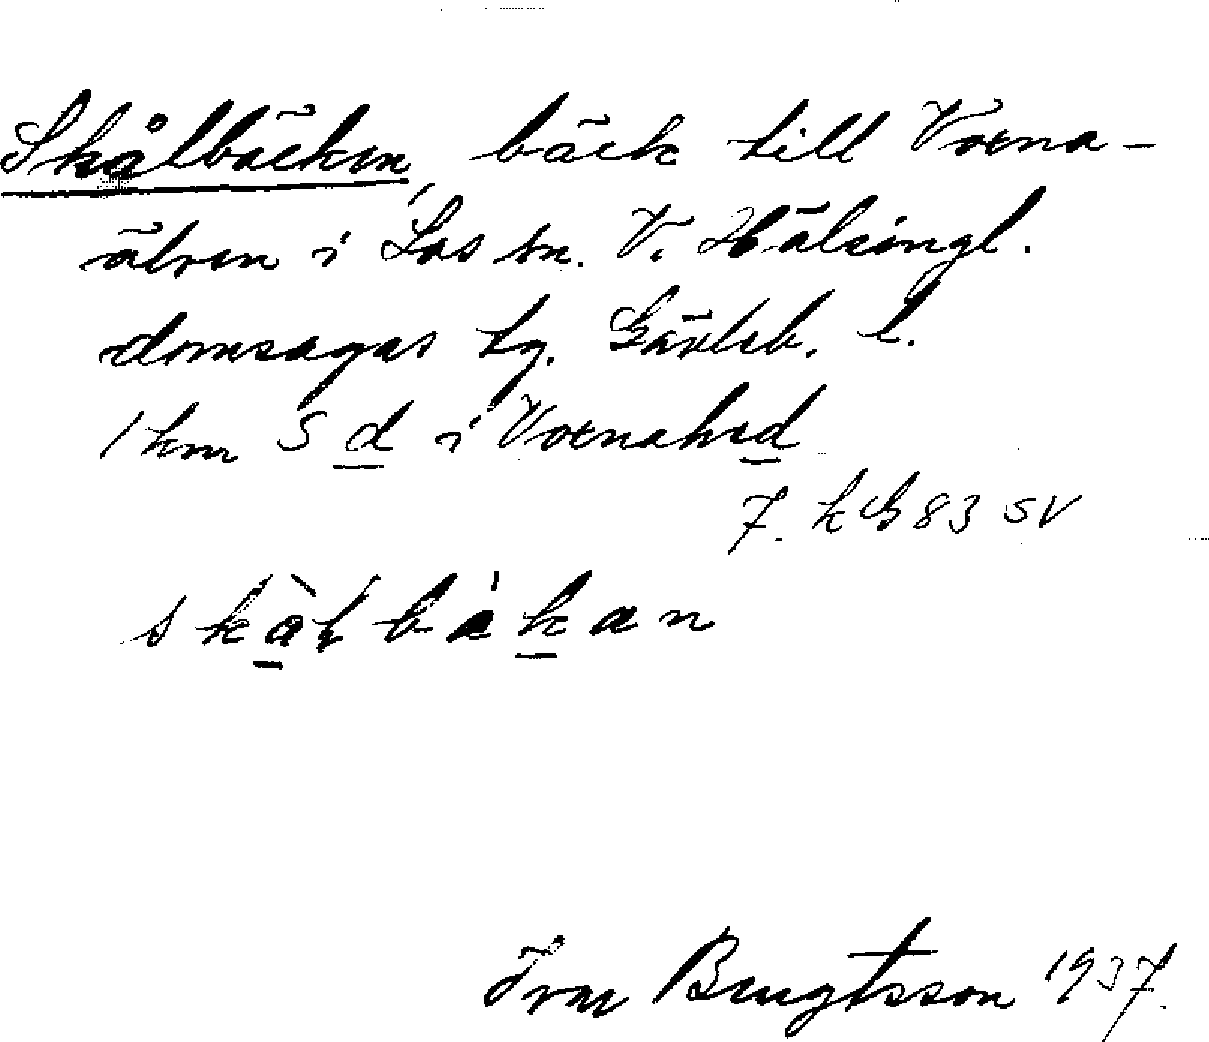 Skålbäcken, bäck till Voxna-
älven i Los sn. V. Hälsingl.
domsagas tg. Gävleb. l.
1 km S d i Voxnahed
7. kG 83 SV
Ivar Bengtsson 1937.